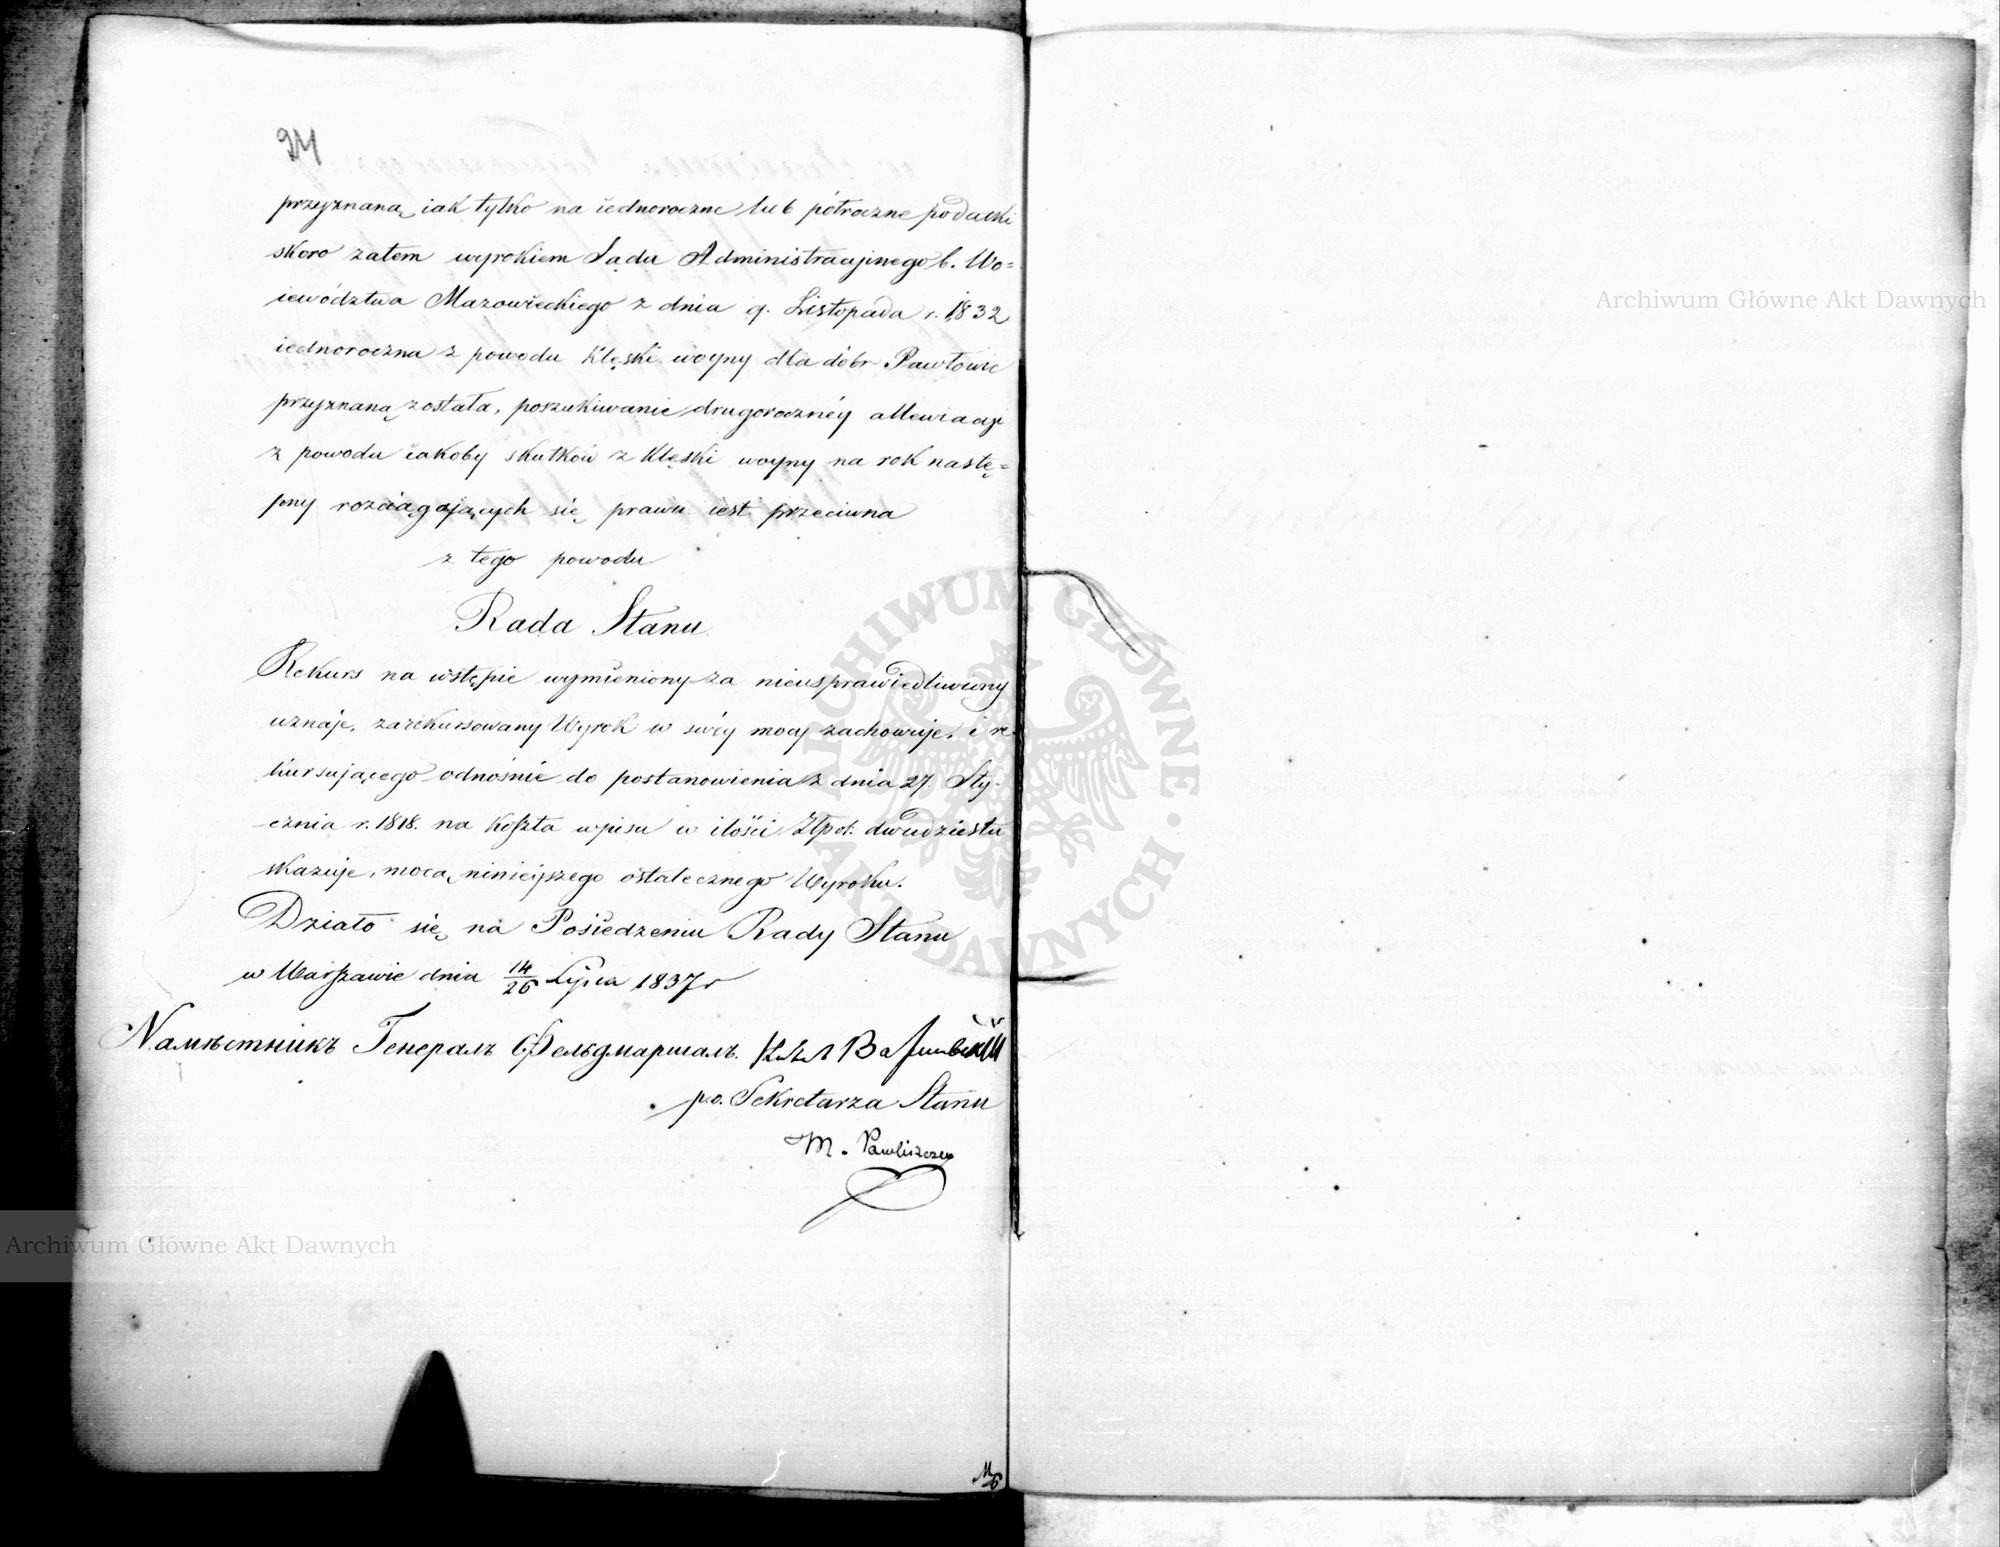 24
przyznaną iak tylko na iednoroczne lub pótroczne podatki
skoro zatem wyrokiem Sądu Administracyjnego b. Wo=
iewództwa Mazowieckiego z dnia 9. Listopada r. 1832
iednoroczna z powodu klęski woyny dla dóbr Pawłowic
przyznaną została, poszukiwanie drugorocznéy allewiacji
z powodu iakoby skutków z klęski woyny na rok nastę=
pny rozciągających się prawu iest przeciwna
z tego powodu
Rada Stanu
Rekurs na wstępie wymieniony za nieusprawiedliwiony
uznaje, zarekursowany Wyrok w swéy mocy zachowuje, i re
kursującego odnośnie do postanowienia z dnia 27. Sty-
cznia r. 1818. na koszta wpisu w ilości Złpol: dwudziestu
skazuje, mocą ninieyszego ostatecznego Wyroku.
Działo się na Posiedzeniu Rady Stanu
w Warszawie dnia 14/26 Lipca 1837 r
Намѣстникъ Генералъ Фельдмаршалъ.
p.o. Sekretarza Stanu
M. Pawliszczew
Archiwum Główne Akt Dawnych
Archiwum Główne Akt Dawnych
ARCHIWUM GŁÓWNE · AKT DAWNYCH ·